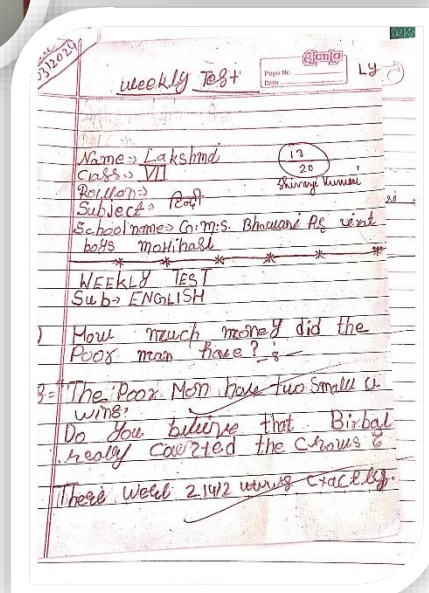 03/2024
Weekly Test
Ajanta
Page No.
Date
Ly
Name → Lakshmi
Class → VII
13
20
Shivangi Kumari
Roll no →
Subject → हिन्दी
School name → G.M.S. Bhawani
boys
WEEKLY TEST
Sub → ENGLISH
How much money did the
Poor man have?
The Poor Man have two Small
wins,
Do you believe that Birbal
really counted the Crows
There Well 21412 exactly.